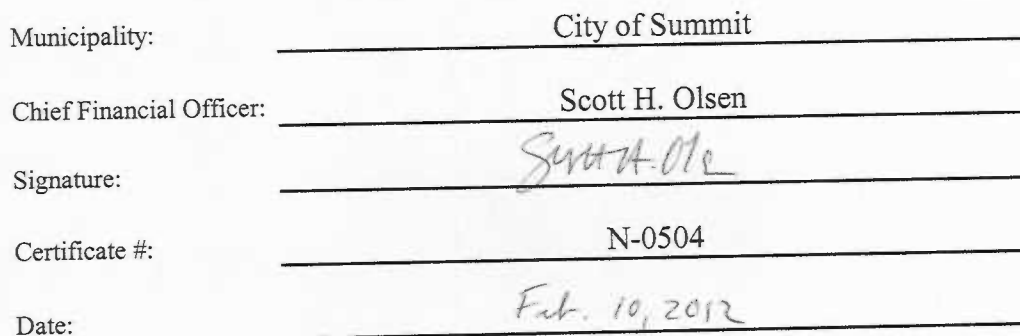 Municipality: City of Summit
Chief Financial Officer: Scott H. Olsen
Signature: Scott H. Ols
Certificate #: N-0504
Date: Feb. 10, 2012